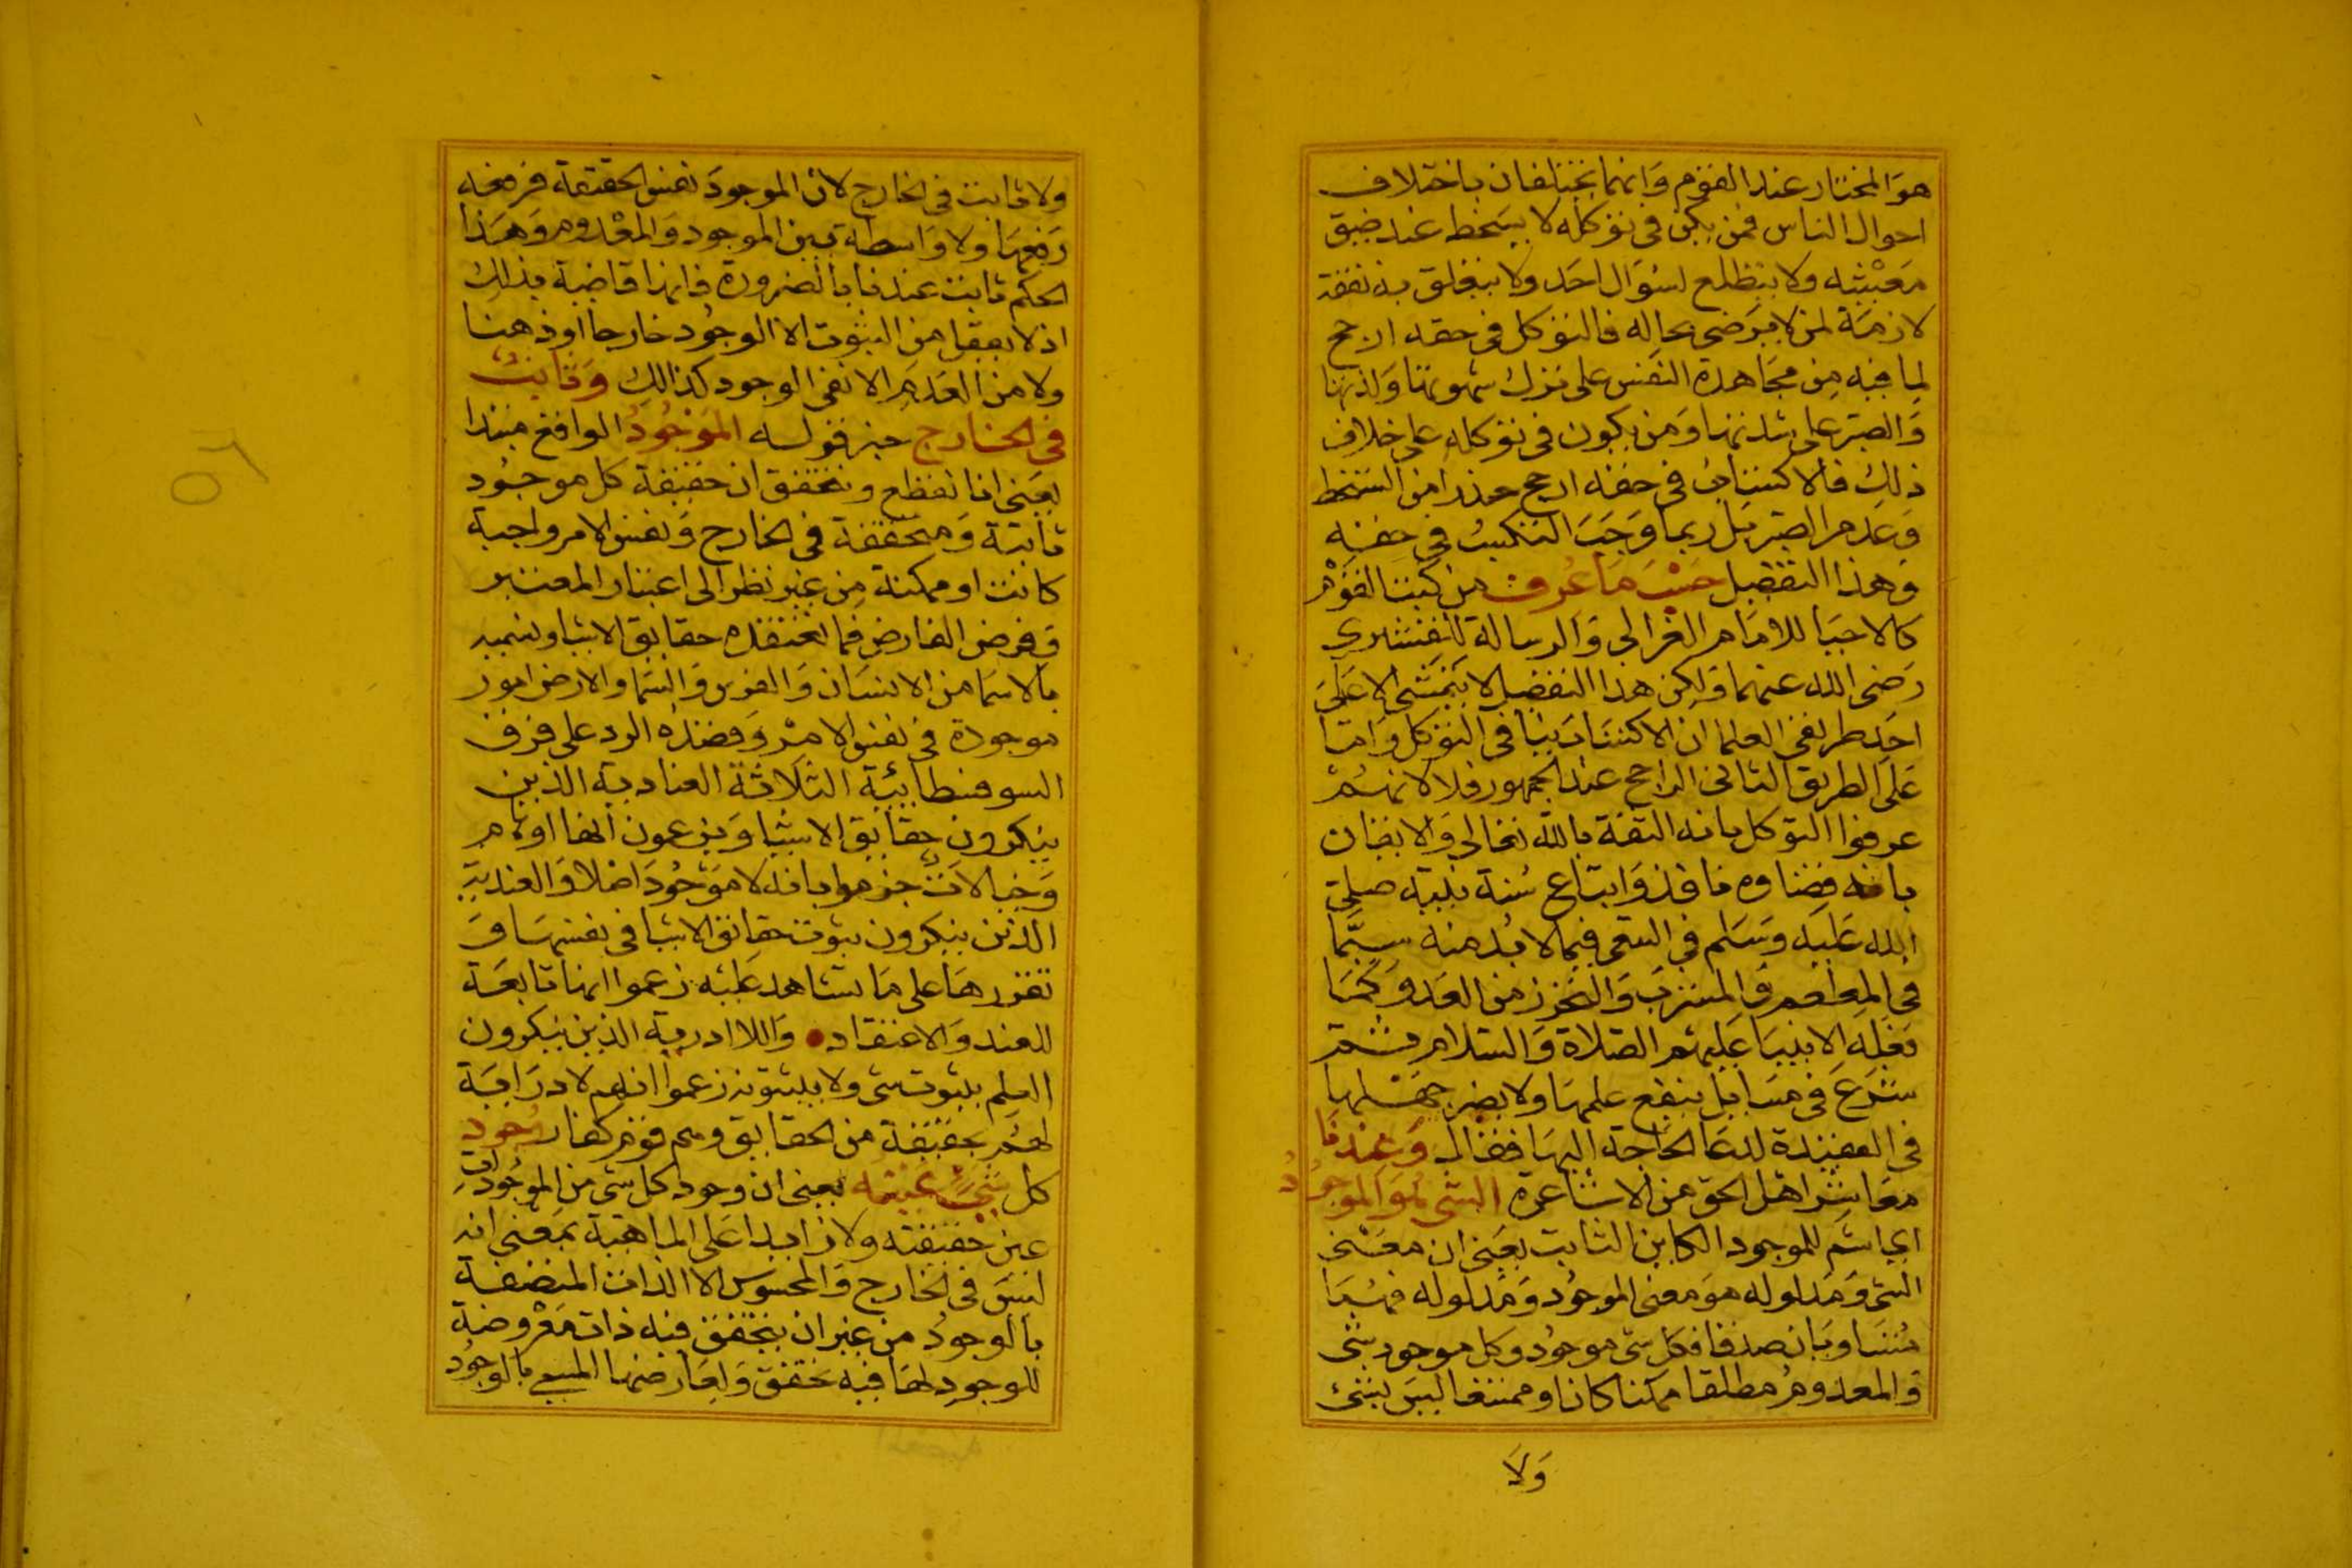 هو المختار عند القوم وانهما يختلفان باختلاف
احوال الناس فمن يكن في توكله لا يسخط عند ضيق
معيشته ولا يتطلع لسوال احد ولا يتعلق به نفقة
لازمة لمن لا يرضى بحاله فالتوكل في حقه ارجح
لما فيه من مجاهدة النفس على ترك شهوتها ولذتها
والصبر على شدتها ومن يكون في توكله على خلاف
ذلك فالاكتساب في حقه ارجح حذرا من السخط
وعدم الصبر بل ربما وجب التكسب في حقه
وهذا التفصيل حسب ما عرف من كتب القوم
كالاحيا للامام الغزالي والرسالة للقشيري
رضى الله عنهما ولكن هذا التفصيل لا يتمشى الا على
احد طريقي العلما ان الاكتساب ينافي التوكل واما
على الطريق الثاني الراجح عند الجمهور فلا لانهم
عرفوا التوكل بانه الثقة بالله تعالى والايقان
بانه قضاوه نافذ واتباع سنة نبيه صلى
الله عليه وسلم في السعي فيما لا بد منه سيما
في المطعم والمشرب والتحرز من العدو كما
فعله الانبيا عليهم الصلاة والسلام ثم
شرع في مسايل ينفع علمها ولا يضر جهلها
في العقيدة لدعا الحاجة اليها فقال وعندنا
معاشر اهل الحق من الاشاعرة الشي هو الموجود
اي اسم للموجود الكاين الثابت يعني ان معنى
الشي ومدلوله هو معنى الموجود ومدلوله فهما
متساويان صدقا فكل شي موجود وكل موجود شي
والمعدوم مطلقا ممكنا كان او ممتنعا ليس بشئ
ولا
ولا ثابت في الخارج لان الموجود نفس الحقيقة فرفعه
رفعها ولا واسطة بين الموجود والمعدوم وهذا
الحكم ثابت عندنا بالضرورة فانها قاضية بذلك
اذ لا يعقل من الثبوت الا الوجود خارجا او ذهنا
ولا من العدم الا نفي الوجود كذلك وثابت
في الخارج خبر قوله الموجود الواقع مبتدا
يعني انا نقطع ونحقق ان حقيقة كل موجود
ثابتة ومتحققة في الخارج ونفس الامر واجبة
كانت او ممكنة من غير نظر الى اعتبار المعتبر
وفرض الفارض فما نعتقده حقايق الاشيا ونسميه
بالاسما من الانسان والفرس والسما والارض امور
موجودة في نفس الامر وقصده الرد على فرق
السوفسطايئة الثلاثة العنادية الذين
ينكرون حقائق الاشيا ويزعمون انها اوهام
وخيالات جزموا بانه لا موجود اصلا والعندية
الذين ينكرون ثبوت حقائق الاشيا في نفسها و
تقررها على ما نشاهد عليه زعموا انها تابعة
للعند والاعتقاد واللاادرية الذين ينكرون
العلم بثبوت شي ولا بثبوته زعموا انهم لا دراية
لهم بحقيقة من الحقايق وهم قوم كفار وجود
كل شئ عينه يعني ان وجود كل شي من الموجودات
عين حقيقته ولا زايدا على الماهية بمعنى انه
ليس في الخارج والمحسوس الا الذات المتصفة
بالوجود من غير ان يتحقق فيه ذات معروضة
للوجود لها فيه تحقق ولعارضها المسمى بالوجود